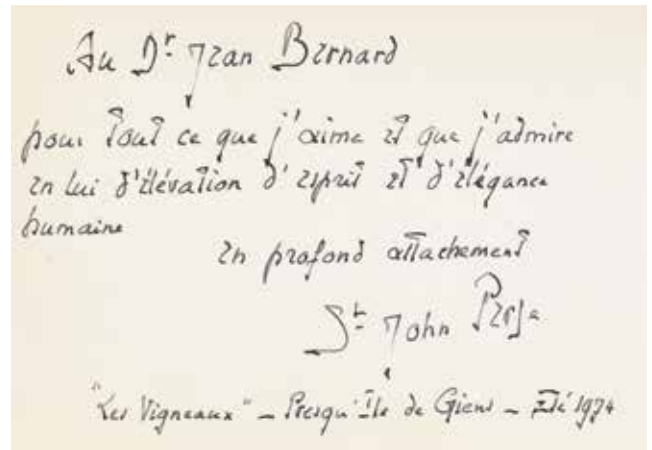 Au Dr. Jean Bernard
pour tout ce que j'aime et que j'admire
en lui d'élévation d'esprit et d'élégance
humaine
en profond attachement
St. John Perse
"Les Vigneaux" – Presqu'Île de Giens – Été 1974